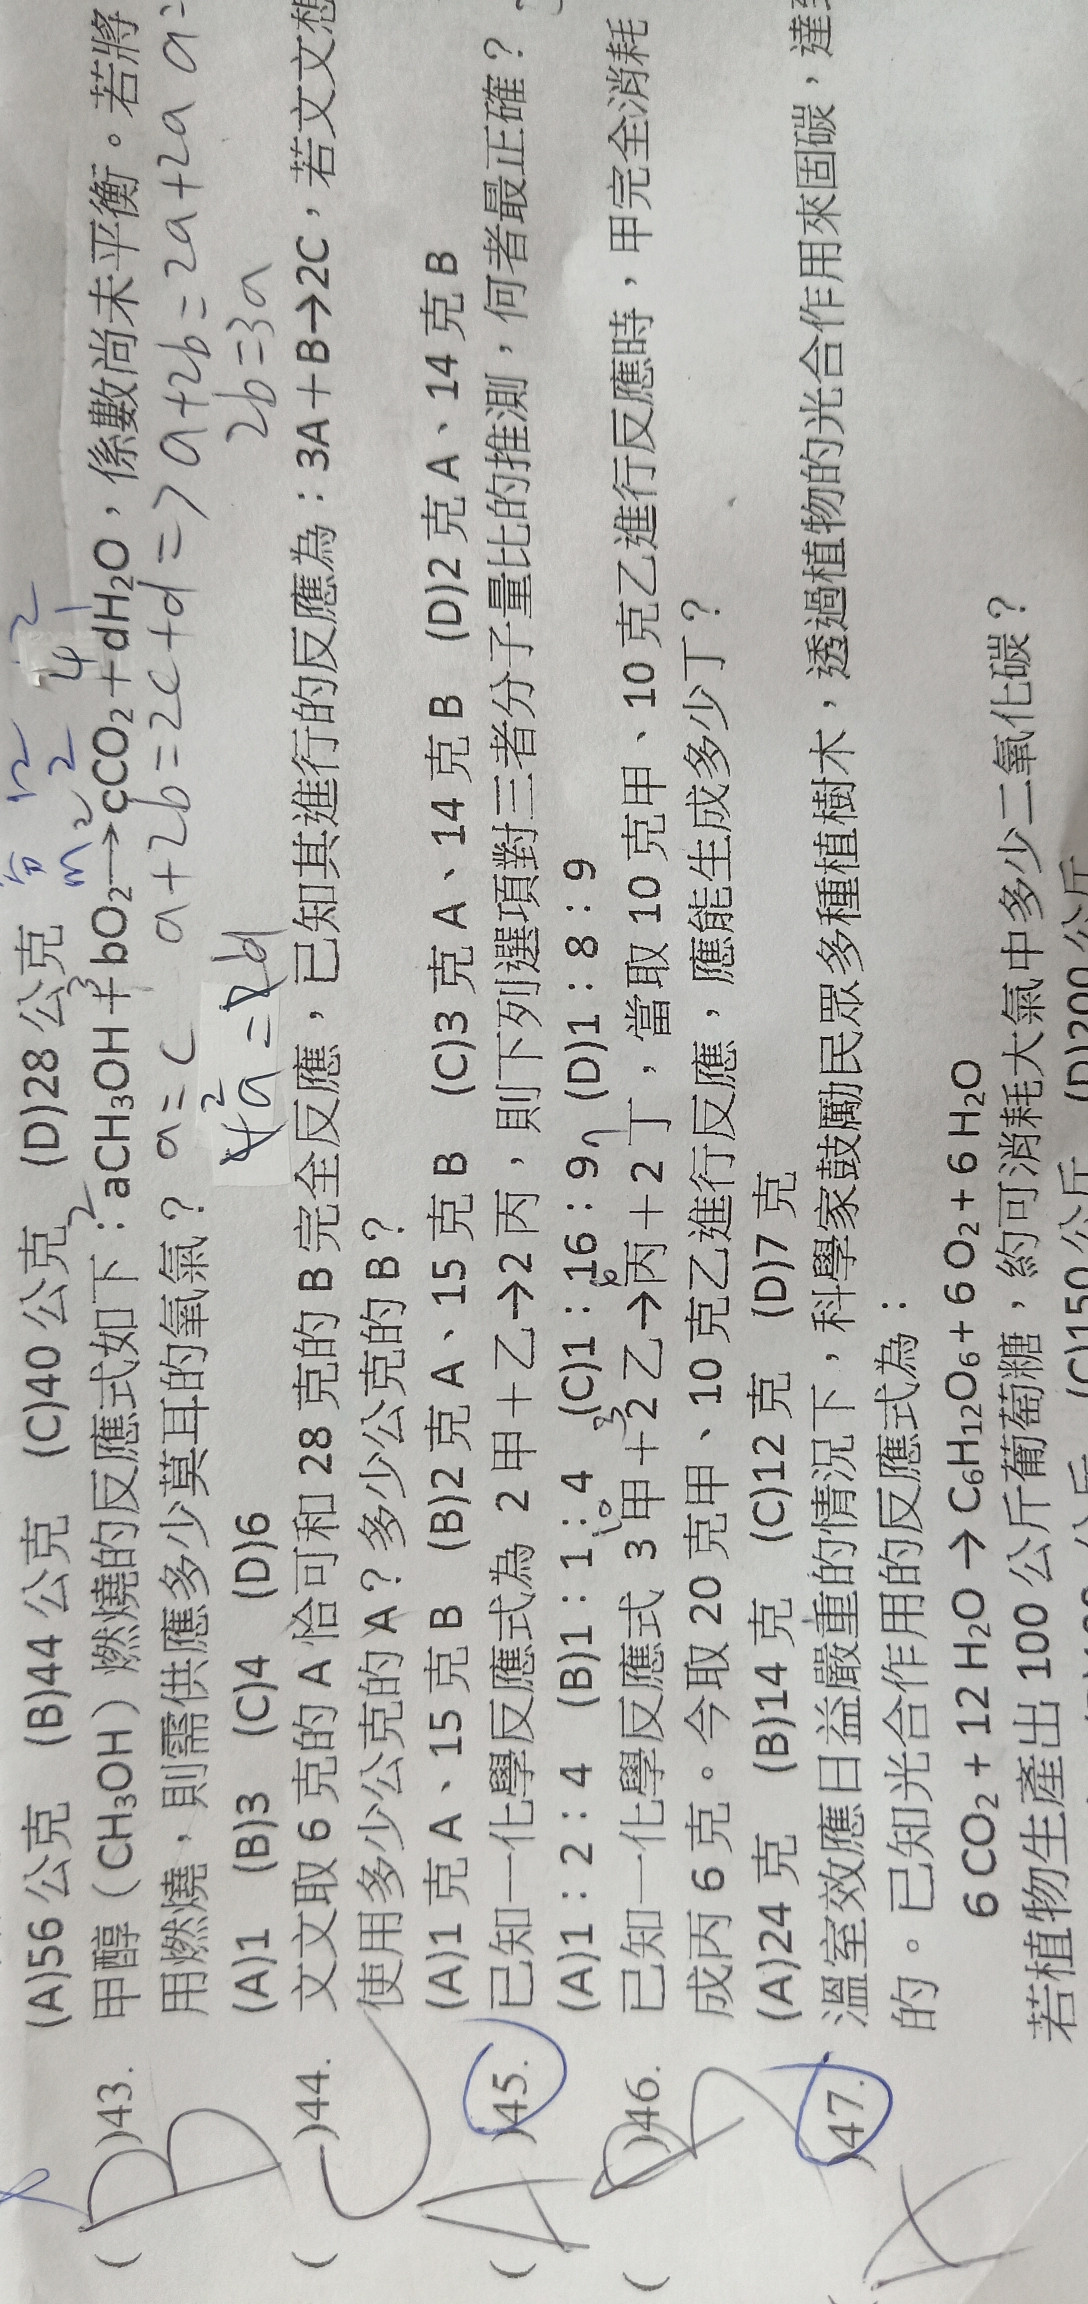 (A)56 公克 (B)44 公克 (C)40 公克 (D)28 公克
( B )43. 甲醇（CH₃OH）燃燒的反應式如下：aCH₃OH＋bO₂→cCO₂＋dH₂O，係數尚未平衡。若將
用燃燒，則需供應多少莫耳的氧氣？ a=c a+2b=2c+d => a+2b=2a+2a a=
(A)1 (B)3 (C)4 (D)6 4a=2d 2b=3a
( C )44. 文文取 6 克的 A 恰可和 28 克的 B 完全反應，已知其進行的反應為：3A＋B→2C，若文文想
使用多少公克的 A？多少公克的 B？
(A)1 克 A、15 克 B (B)2 克 A、15 克 B (C)3 克 A、14 克 B (D)2 克 A、14 克 B
( A )45. 已知一化學反應式為 2 甲＋乙→2 丙，則下列選項對三者分子量比的推測，何者最正確？
(A)1：2：4 (B)1：1：4 (C)1：16：9 (D)1：8：9
( B )46. 已知一化學反應式 3 甲＋2 乙→丙＋2 丁，當取 10 克甲、10 克乙進行反應時，甲完全消耗
成丙 6 克。今取 20 克甲、10 克乙進行反應，應能生成多少丁？
(A)24 克 (B)14 克 (C)12 克 (D)7 克
)47. 溫室效應日益嚴重的情況下，科學家鼓勵民眾多種植樹木，透過植物的光合作用來固碳，達到
的。已知光合作用的反應式為：
6 CO₂ + 12 H₂O → C₆H₁₂O₆ + 6 O₂ + 6 H₂O
若植物生產出 100 公斤葡萄糖，約可消耗大氣中多少二氧化碳？
(C)150 公斤 (D)200 公斤